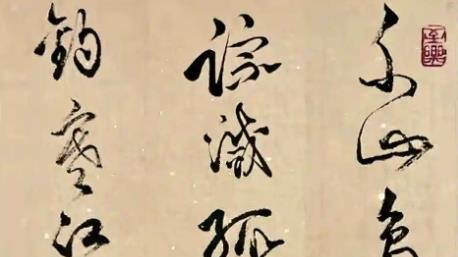 千山鳥
踪滅孤
釣寒江